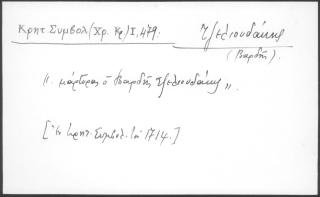 Κρητ Συμβολ (Χρ. Κρ) I, 479. Τζελιουδάκης
(Βαρδής).
"· μάρτυρας ὁ Βαρδής Τζελιουδάκης".
[Ἐν κρητ. Συμβολ. τοῦ 1714.]